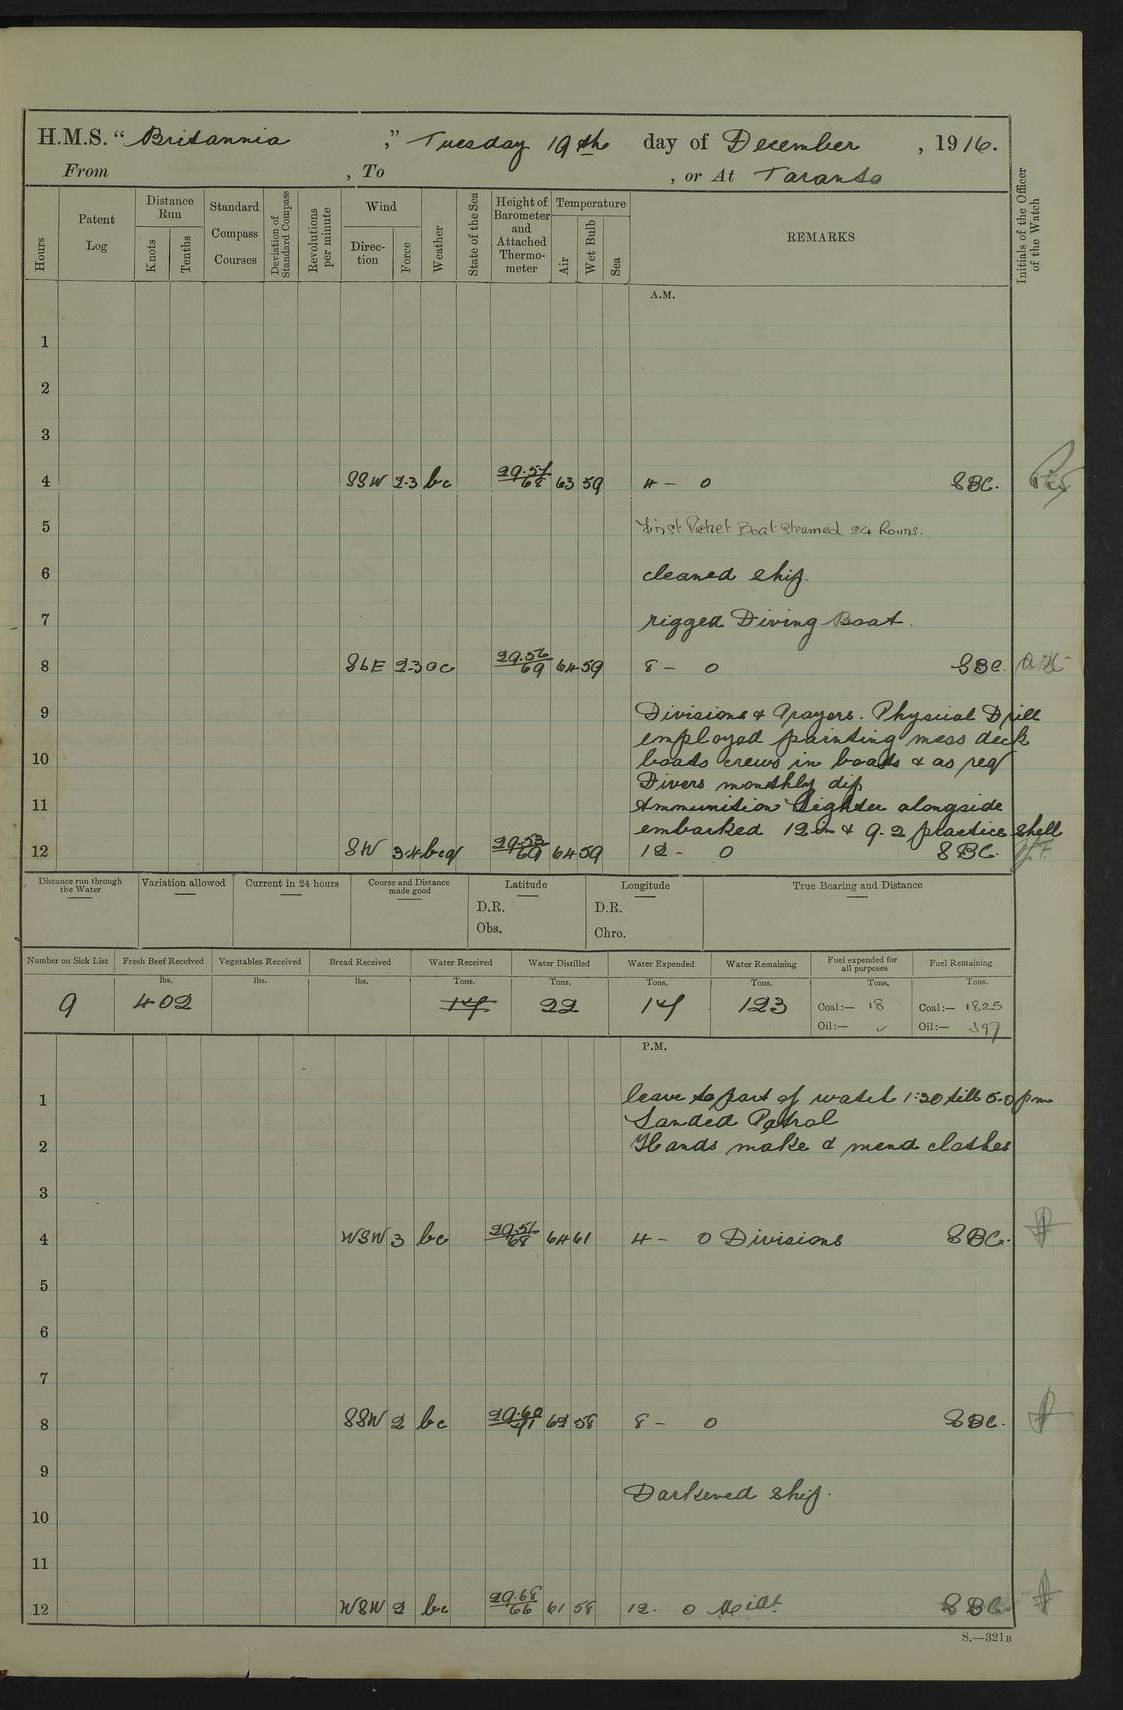 H.M.S. “ Britannia ,” Tuesday 19th day of December , 1916.
From , To , or At Taranto
Hours
Patent Log
Distance Run
Knots
Tenths
Standard Compass Courses
Deviation of Standard Compass
Revolutions per minute
Wind
Direc- tion
Force
Weather
State of the Sea
Height of Barometer and Attached Thermo- meter
Temperature
Air
Wet Bulb
Sea
REMARKS
Initials of the Officer of the Watch
A.M.
1
2
3
4 SSW 2.3 bc 29.57/68 63 59 4 - 0 SBC.
5 First Picket Boat Steamed 24 hours.
6 cleaned ship.
7 rigged Diving Boat.
8 SbE 2.3 oc 29.56/69 64 59 8 - 0 SBC.
9 Divisions & Prayers. Physical Drill
employed painting mess deck
10 boats crews in boats & as req
Divers monthly dip
11 Ammunition Lighter alongside
embarked 12 in & 9.2 practice shell
12 SW 3.4 bcq 29.53/69 64 59 12 - 0 SBC.
Distance run through the Water
Variation allowed
Current in 24 hours
Course and Distance made good
Latitude
D.R.
Obs.
Longitude
D.R.
Chro.
True Bearing and Distance
Number on Sick List Fresh Beef Received Vegetables Received Bread Received Water Received Water Distilled Water Expended Water Remaining Fuel expended for all purposes Fuel Remaining
lbs. lbs. lbs. Tons. Tons. Tons. Tons. Tons. Tons.
9 402 14 22 14 123 Coal:— 18 Coal:— 1825
Oil:— Oil:— 397
P.M.
1 leave to part of watch 1:30 till 5.0 pm
Landed Patrol
2 Hands make & mend clothes
3
4 WSW 3 bc 29.51/68 64 61 4 - 0 Divisions SBC.
5
6
7
8 SSW 2 bc 29.60/71 62 58 8 - 0 SBC.
9
Darkened ship.
10
11
12 WSW 2 bc 29.68/66 61 58 12. 0 Midt SBC
S.—321B